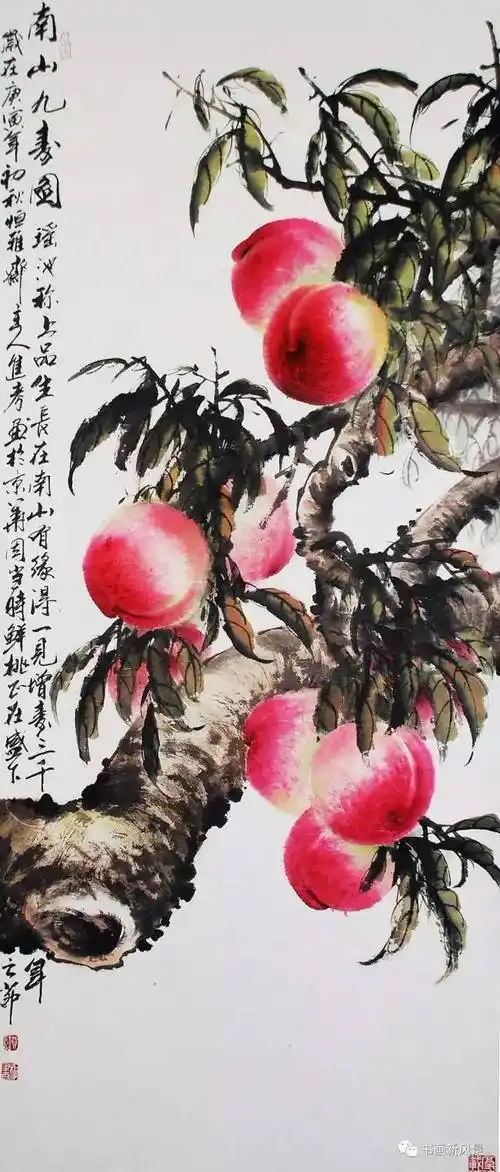 南山九寿图 瑶池称上品生長在南山有缘得一見增寿三千年
歲在庚寅年初秋恒雅齋主人焦考画於京華園当時鮮桃正在盛下之節
书画新风景